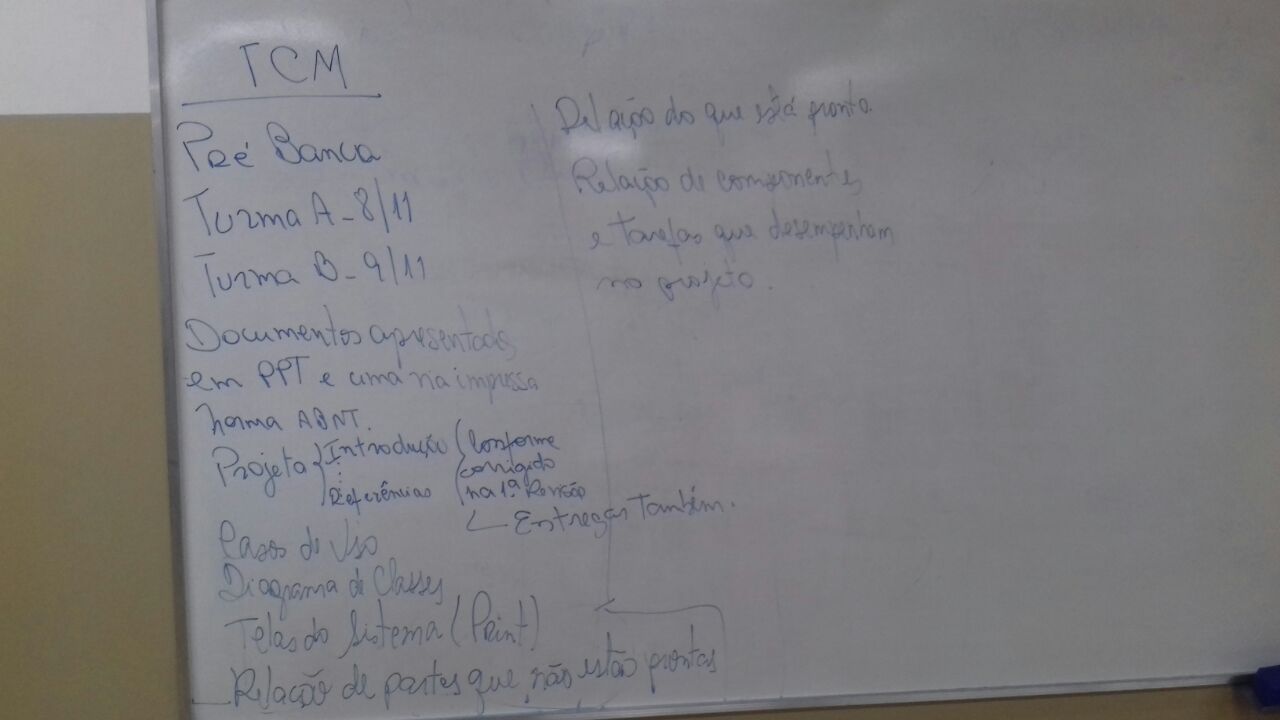 TCM
Pré Banca
Turma A - 8/11
Turma B - 9/11
Documentos apresentados
em PPT e uma via impressa
norma ABNT.
Projeto { Introdução ( Conforme
⋮ corrigido
Referências na 1ª Revisão
Entregar também.
Casos de Uso
Diagrama de Classes
Telas do Sistema (Print)
Relação de partes que não estão prontas
Relação do que está pronto.
Relação de componentes
e tarefas que desempenham
no projeto.